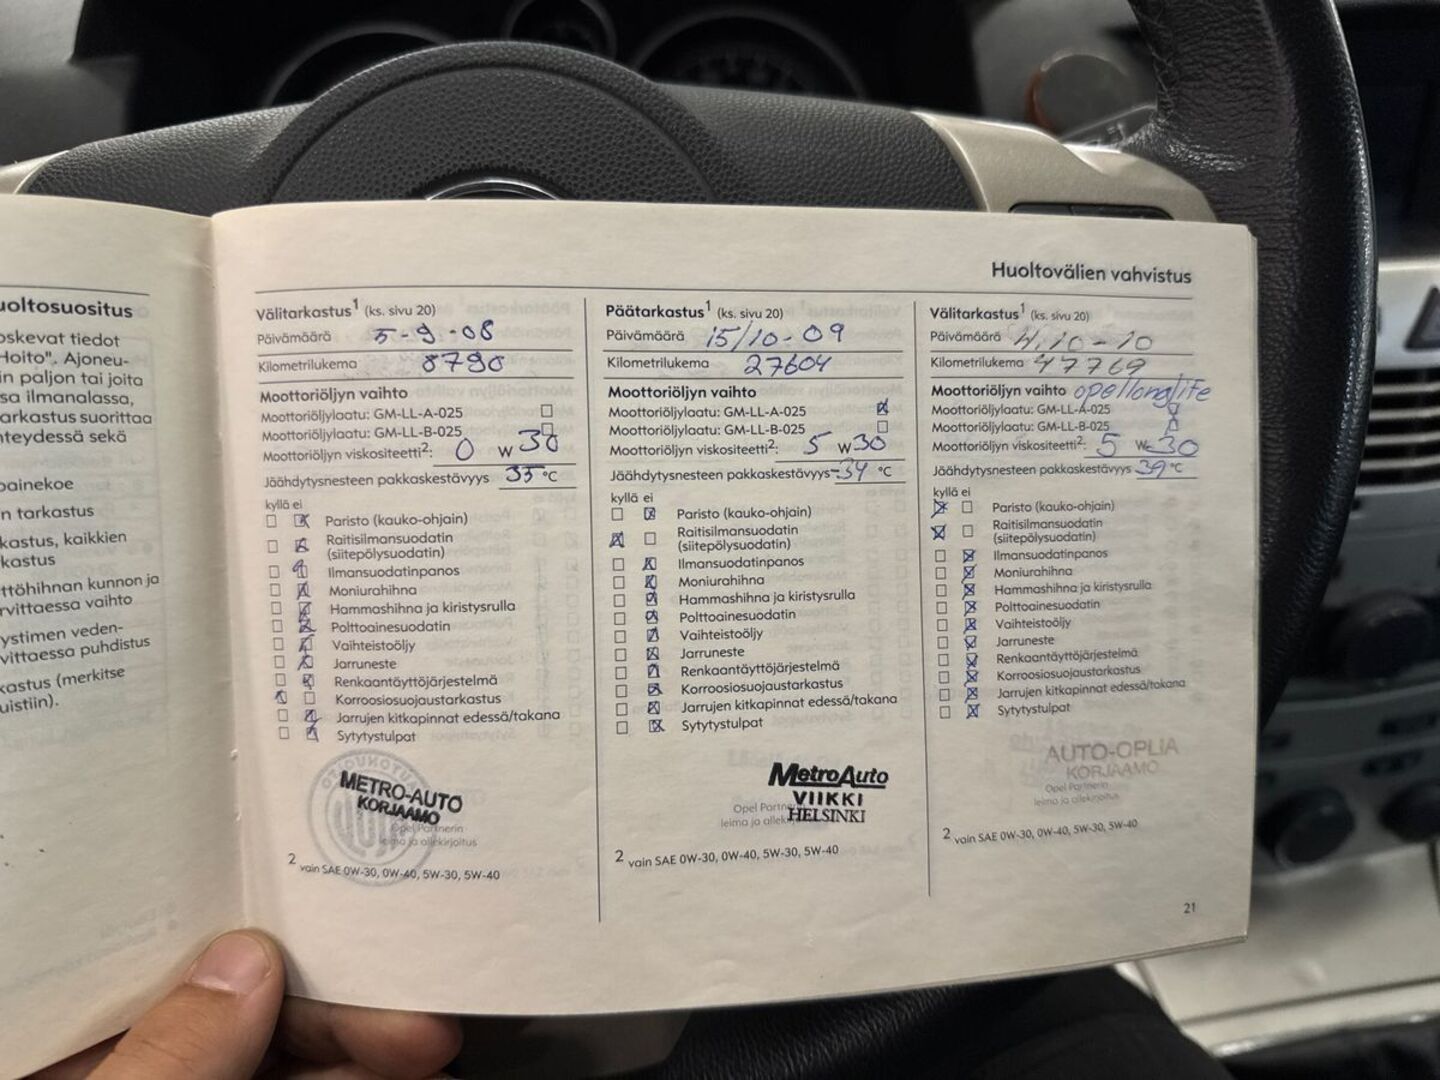 uoltosuositus
oskevat tiedot
Hoito". Ajoneu-
in paljon tai joita
sa ilmanalassa,
arkastus suorittaa
hteydessä sekä
painekoe
n tarkastus
kastus, kaikkien
kastus
ttöhihnan kunnon ja
rvittaessa vaihto
ystimen veden-
vittaessa puhdistus
kastus (merkitse
uistiin).
Huoltovälien vahvistus
Välitarkastus1 (ks. sivu 20)
Päivämäärä 5-9-08
Kilometrilukema 8790
Moottoriöljyn vaihto
Moottoriöljylaatu: GM-LL-A-025
Moottoriöljylaatu: GM-LL-B-025
Moottoriöljyn viskositeetti2: 0 W 30
Jäähdytysnesteen pakkaskestävyys 35 °C
kyllä ei
Paristo (kauko-ohjain)
Raitisilmansuodatin
(siitepölysuodatin)
Ilmansuodatinpanos
Moniurahihna
Hammashihna ja kiristysrulla
Polttoainesuodatin
Vaihteistoöljy
Jarruneste
Renkaantäyttöjärjestelmä
Korroosiosuojaustarkastus
Jarrujen kitkapinnat edessä/takana
Sytytystulpat
METRO-AUTO
KORJAAMO
Opel Partnerin
leima ja allekirjoitus
2 vain SAE 0W-30, 0W-40, 5W-30, 5W-40
Päätarkastus1 (ks. sivu 20)
Päivämäärä 15/10-09
Kilometrilukema 27604
Moottoriöljyn vaihto
Moottoriöljylaatu: GM-LL-A-025
Moottoriöljylaatu: GM-LL-B-025
Moottoriöljyn viskositeetti2: 5 W 30
Jäähdytysnesteen pakkaskestävyys -34 °C
kyllä ei
Paristo (kauko-ohjain)
Raitisilmansuodatin
(siitepölysuodatin)
Ilmansuodatinpanos
Moniurahihna
Hammashihna ja kiristysrulla
Polttoainesuodatin
Vaihteistoöljy
Jarruneste
Renkaantäyttöjärjestelmä
Korroosiosuojaustarkastus
Jarrujen kitkapinnat edessä/takana
Sytytystulpat
MetroAuto
VIIKKI
Opel Partnerin
HELSINKI
leima ja allekirj
2 vain SAE 0W-30, 0W-40, 5W-30, 5W-40
Välitarkastus1 (ks. sivu 20)
Päivämäärä 4.10-10
Kilometrilukema 47769
Moottoriöljyn vaihto opellonglife
Moottoriöljylaatu: GM-LL-A-025
Moottoriöljylaatu: GM-LL-B-025
Moottoriöljyn viskositeetti2: 5 W 30
Jäähdytysnesteen pakkaskestävyys 39 °C
kyllä ei
Paristo (kauko-ohjain)
Raitisilmansuodatin
(siitepölysuodatin)
Ilmansuodatinpanos
Moniurahihna
Hammashihna ja kiristysrulla
Polttoainesuodatin
Vaihteistoöljy
Jarruneste
Renkaantäyttöjärjestelmä
Korroosiosuojaustarkastus
Jarrujen kitkapinnat edessä/takana
Sytytystulpat
AUTO-OPLIA
KORJAAMO
Opel Partnerin
leima ja allekirjoitus
2 vain SAE 0W-30, 0W-40, 5W-30, 5W-40
21